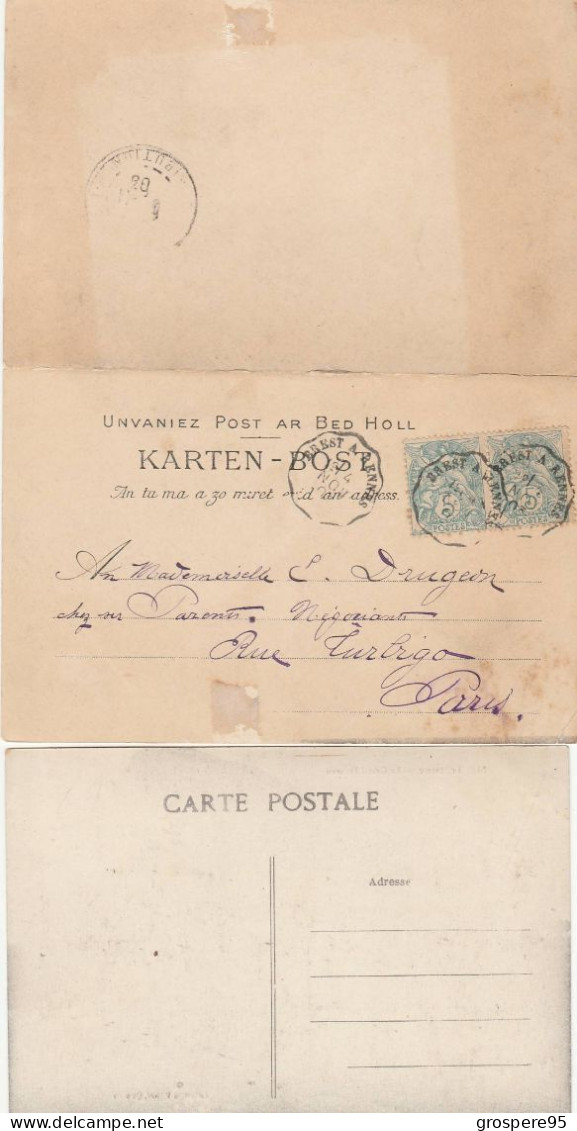 DISTRIBUTION
03
UNVANIEZ POST AR BED HOLL
KARTEN-BOST
An tu ma a zo miret evid an adress.
BREST A RENNES
NOV
BREST A RENNES
BREST A RENNES
5
5
POSTES
POSTES
An Mademoiselle E. Drugeon
chez ses Parents. Négociants
Rue Turbigo
Paris.
CARTE POSTALE
Adresse
www.delcampe.net
grospere95